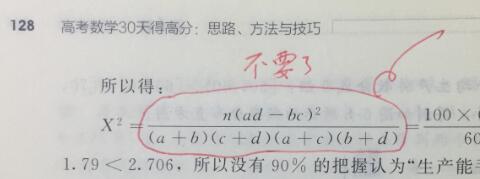 128 高考数学30天得高分：思路、方法与技巧
不要了
所以得：
X² = n(ad－bc)² / (a＋b)(c＋d)(a＋c)(b＋d) = 100×
1.79＜2.706，所以没有90%的把握认为“生产能手